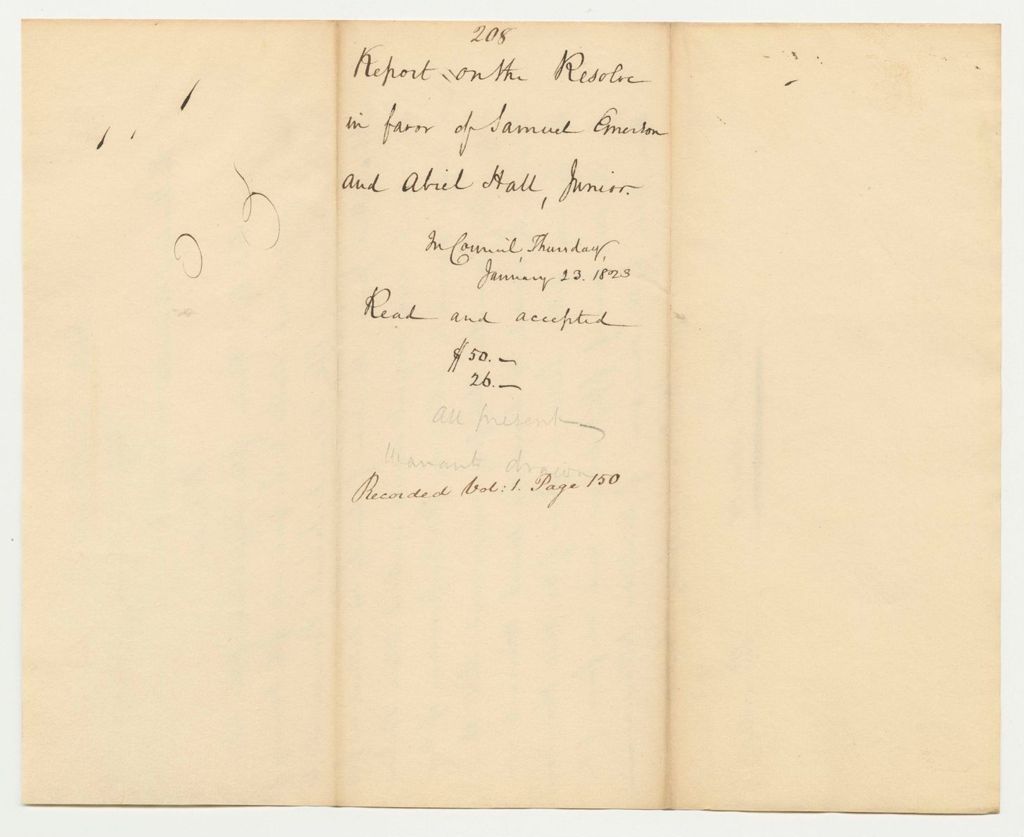 208
Report on the Resolve
in favor of Samuel Emerson
and Abiel Hall, Junior.
In Council, Thursday,
January 23. 1823
Read and accepted
$50.—
26.—
All present
Warrants drawn
Recorded Vol: 1. Page 150